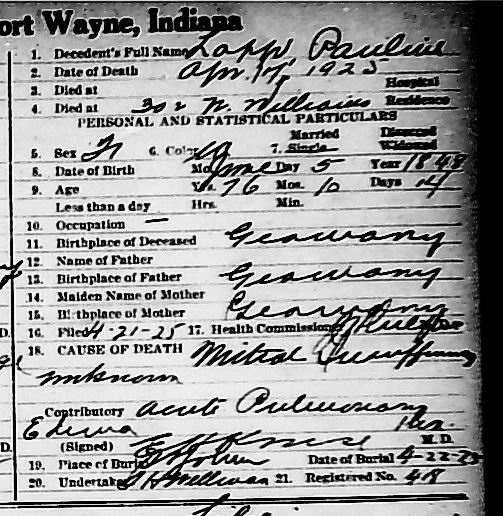 ort Wayne, Indiana
1. Decedent's Full Name Lapp Pauline
2. Date of Death Apr. 17, 1925
3. Died at Hospital
4. Died at 302 W. Williams Residence
PERSONAL AND STATISTICAL PARTICULARS
Married Divorced
5. Sex F 6. Color W 7. Single Widowed
8. Date of Birth Mo. June Day 5 Year 1848
9. Age Yrs. 76 Mos. 10 Days
Less than a day Hrs. Min.
10. Occupation —
11. Birthplace of Deceased Germany
12. Name of Father
13. Birthplace of Father Germany
14. Maiden Name of Mother
15. Birthplace of Mother Germany
16. Filed 4-21-25 17. Health Commissioner
18. CAUSE OF DEATH Mitral Insufficiency
unknown
Contributory Acute Pulmonary
Edema
(Signed) E. H. Kruse M. D.
19. Place of Burial Date of Burial 4-22-25
20. Undertaker 21. Registered No. 48